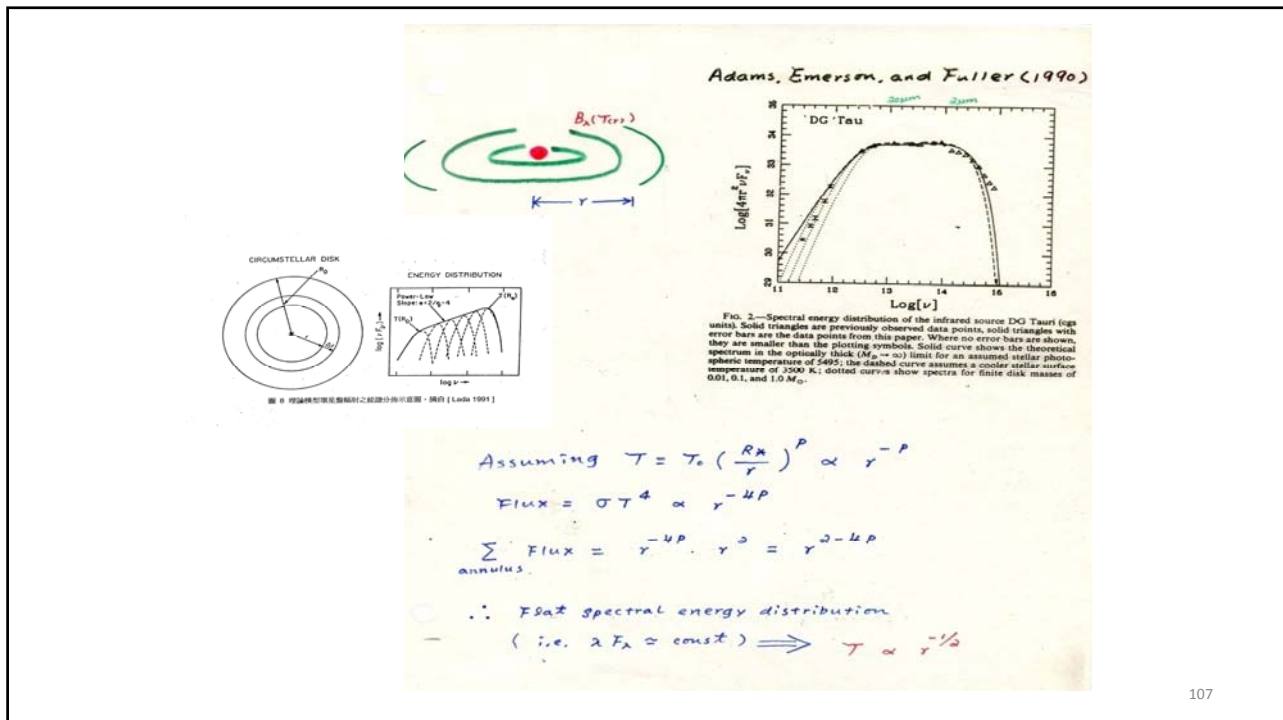 Adams, Emerson, and Fuller (1990)
20μm 2μm
B_λ(T(r))
r
DG Tau
Log[4πr²νF_ν]
36
35
34
33
32
31
30
29
11 12 13 14 15 16
Log[ν]
FIG. 2.—Spectral energy distribution of the infrared source DG Tauri (cgs
units). Solid triangles are previously observed data points, solid triangles with
error bars are the data points from this paper. Where no error bars are shown,
they are smaller than the plotting symbols. Solid curve shows the theoretical
spectrum in the optically thick (M_D → ∞) limit for an assumed stellar photo-
spheric temperature of 5495; the dashed curve assumes a cooler stellar surface
temperature of 3500 K; dotted curves show spectra for finite disk masses of
0.01, 0.1, and 1.0 M_⊙.
CIRCUMSTELLAR DISK
R_D
r
ENERGY DISTRIBUTION
Power-Law
T(R_D)
log (νF_ν) →
log ν →
圖 8 理論模型環星盤輻射之能譜分佈示意圖，摘自 [ Lada 1991 ]
Assuming T = T₀ (R*/r)^p ∝ r^-p
Flux = σT⁴ ∝ r^-4p
∑ Flux = r^-4p · r² = r^2-4p
annulus
∴ Flat spectral energy distribution
(i.e. λF_λ ≃ const) ⟹ T ∝ r^-1/2
107